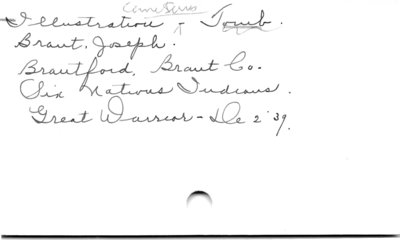 Cemeteries
Illustration - Tomb.
Brant, Joseph.
Brantford, Brant Co.
Six Nations Indians.
Great Warrior - De 2 '39.